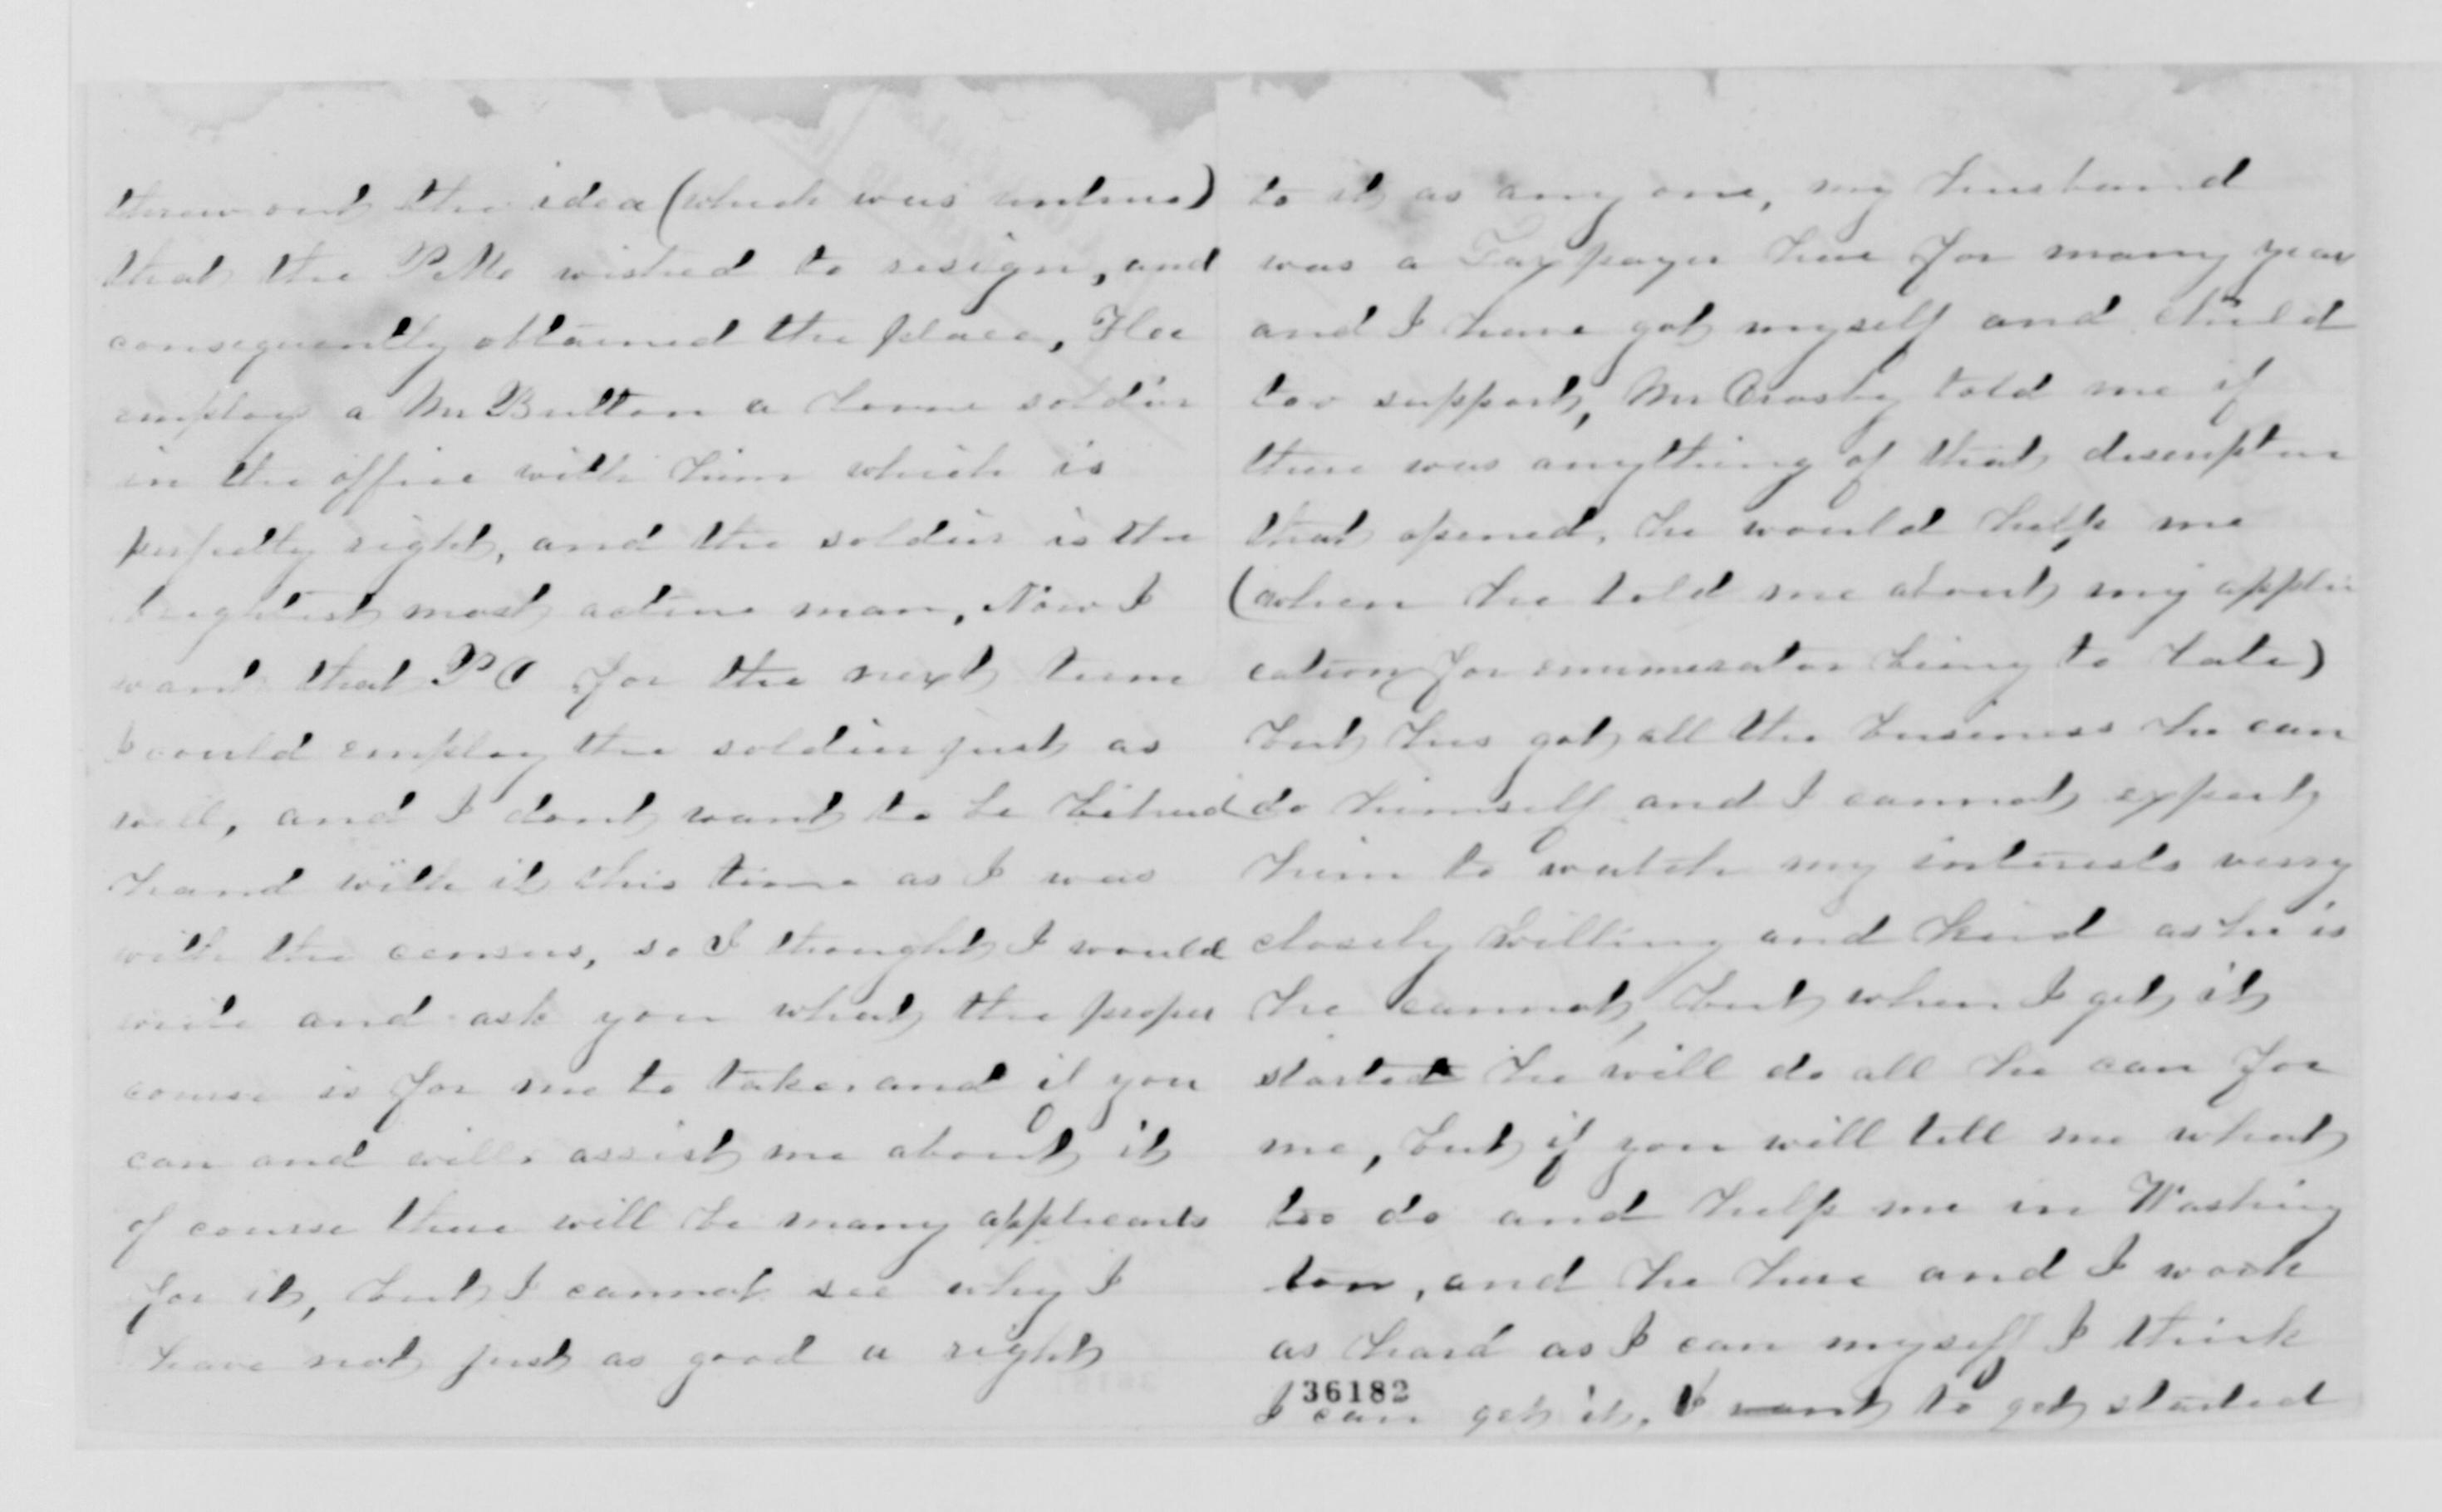 threw out the idea (which was untrue)
that the P.M. wished to resign, and
consequently obtained the place, He
employs a Mr Britton a home soldier
in the office with him which is
perfectly right, and the soldier is the
brightest most active man, Now I
want that PO for the next term
I could employ the soldier just as
well, and I dont want to be behind
hand with it this time as I was
with the census, so I thought I would
write and ask you what the proper
course is for me to take and if you
can and will assist me about it
of course there will be many applicants
for it, but I cannot see why I
have not just as good a right
to it as any one, my husband
was a Taxpayer here for many year
and I have got myself and child
too support, Mr Crosby told me if
there was anything of that descriptin
that opened, he would help me
(when he told me about my appli
cation for enumerator being to late)
but hes got all the business he can
do himself and I cannot expect
him to watch my interests very
closely willing and kind as he is
he cannot, but when I get it
started he will do all he can for
me, but if you will tell me what
too do and help me in Washing
ton, and he here and I work
as hard as I can myself I think
36182
I can get it. I want to get started